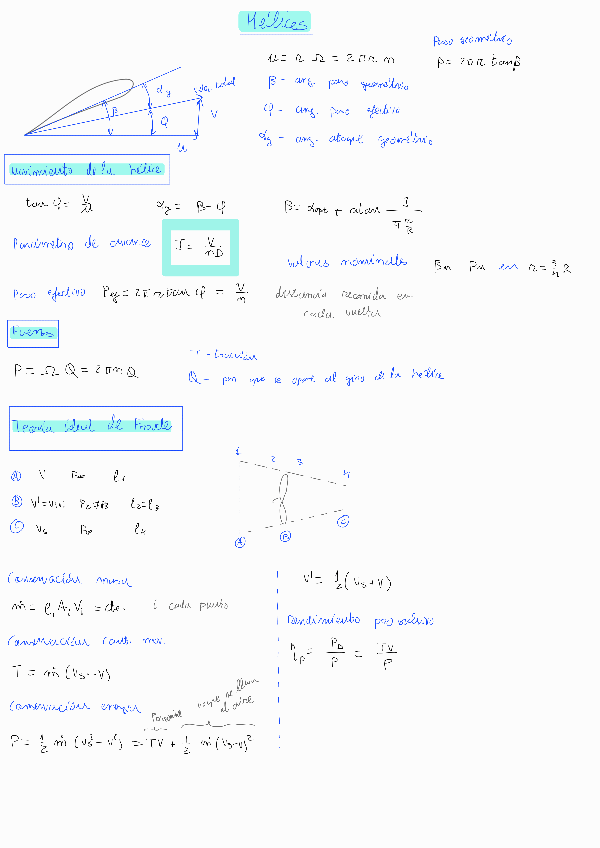 Hélices
Paso geométrico
u = r Ω = 2πr n
p = 2πr tanβ
β - ang. paso geométrico
φ - ang. paso efectivo
αg - ang. ataque geométrico
αg
total
β
φ
V
u
Movimiento de la hélice
tan φ = V/u
αg = β - φ
Parámetro de avance
J = V/nD
Valores nominales
βn Pn en r = 3/4 R
Paso efectivo Pef = 2πr tan φ = V/n
distancia recorrida en
cada vuelta
Fuerza
P = Ω Q = 2πnQ
T - tracción
Q - par que se opone al giro de la hélice
Teoría ideal de Froude
1 2 3 4
A V
B
C Vs
A B C
Conservación masa
ṁ = ρ1 A1 V1 = cte.
cada punto
Conservación cant. mov.
T = ṁ (Vs - V)
Conservación energía
Potencial
que se lleva
el aire
P = 1/2 ṁ (Vs² - V²) = TV + 1/2 ṁ (Vs - V)²
V' = 1/2 (Vs + V)
Rendimiento propulsivo
ηp = PD/P = TV/P